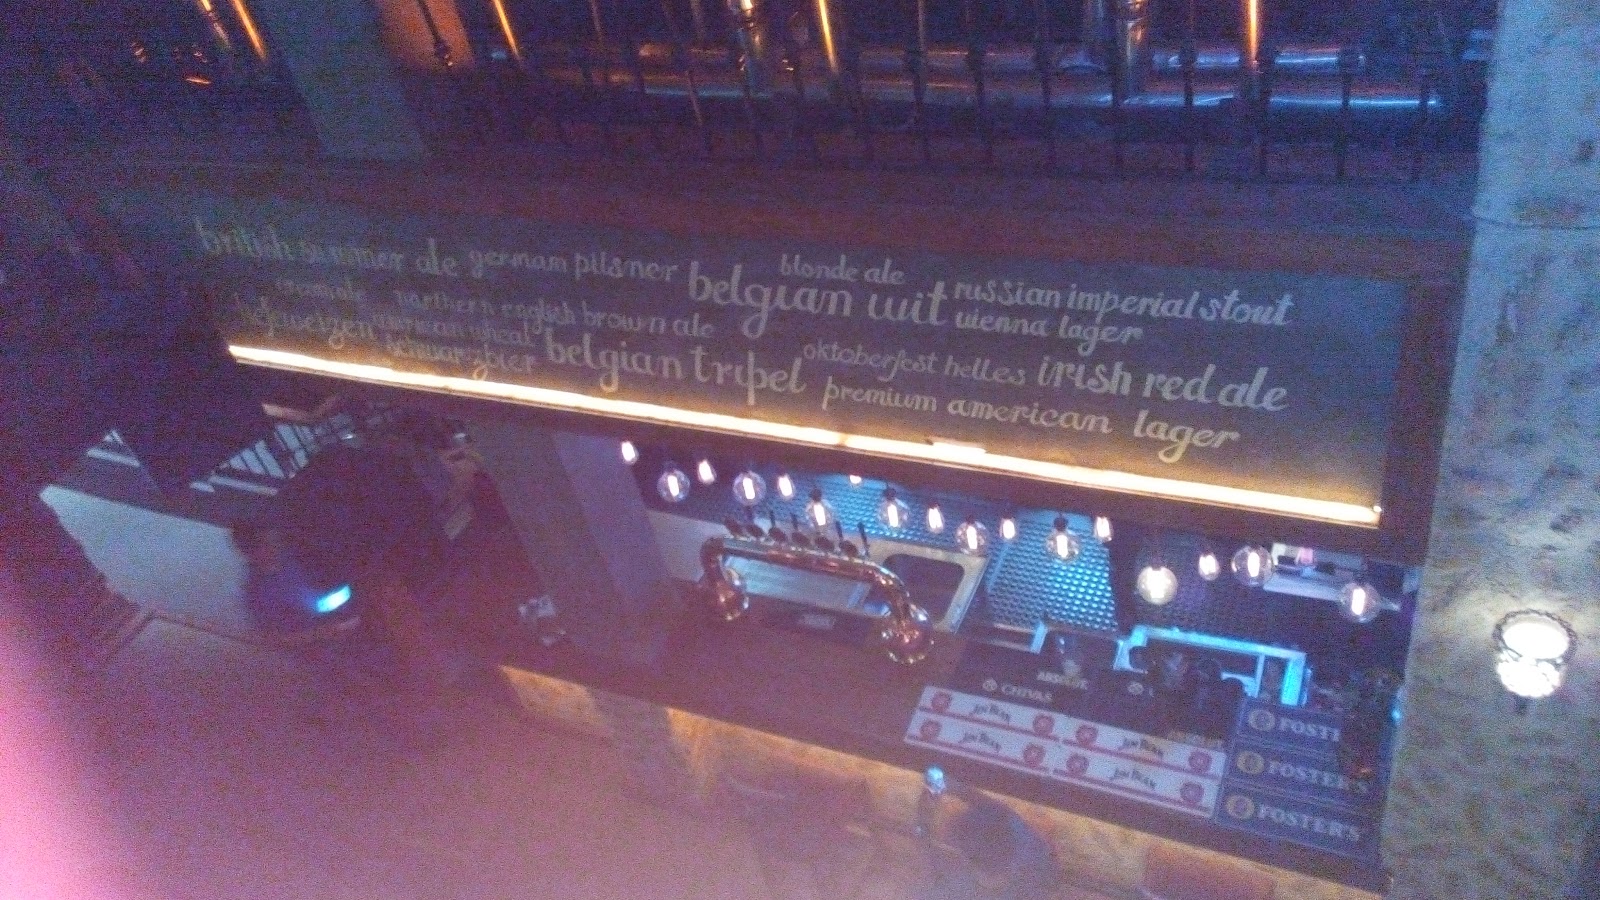 british summer ale german pilsner
blonde ale
belgian wit
russian imperial stout
vienna lager
northern english brown ale
hefeweizen american wheat
schwarzbier
belgian tripel
oktoberfest helles
irish red ale
premium american lager
ABSOLUT
CHIVAS
JIM BEAM JIM BEAM
JIM BEAM JIM BEAM
FOSTE
FOSTER'S
FOSTER'S